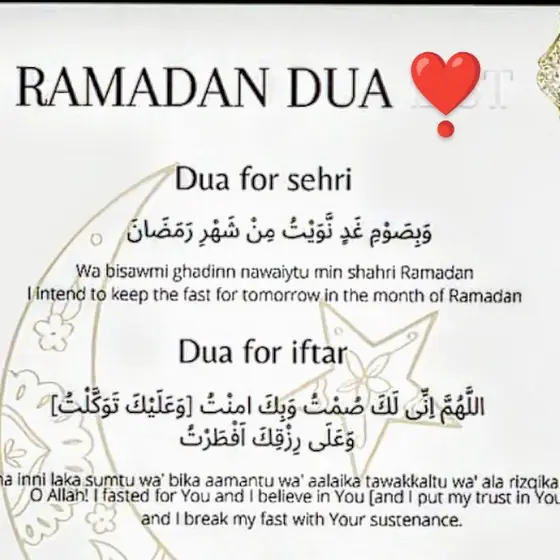 RAMADAN DUA
Dua for sehri
وَبِصَوْمِ غَدٍ نَّوَيْتُ مِنْ شَهْرِ رَمَضَانَ
Wa bisawmi ghadinn nawaiytu min shahri Ramadan
I intend to keep the fast for tomorrow in the month of Ramadan
Dua for iftar
اللَّهُمَّ اِنِّى لَكَ صُمْتُ وَبِكَ امنْتُ [وَعَلَيْكَ تَوَكَّلْتُ]
وَعَلَى رِزْقِكَ اَفْطَرْتُ
inni laka sumtu wa' bika aamantu wa' aalaika tawakkaltu wa' ala rizqika
O Allah! I fasted for You and I believe in You [and I put my trust in You
and I break my fast with Your sustenance.